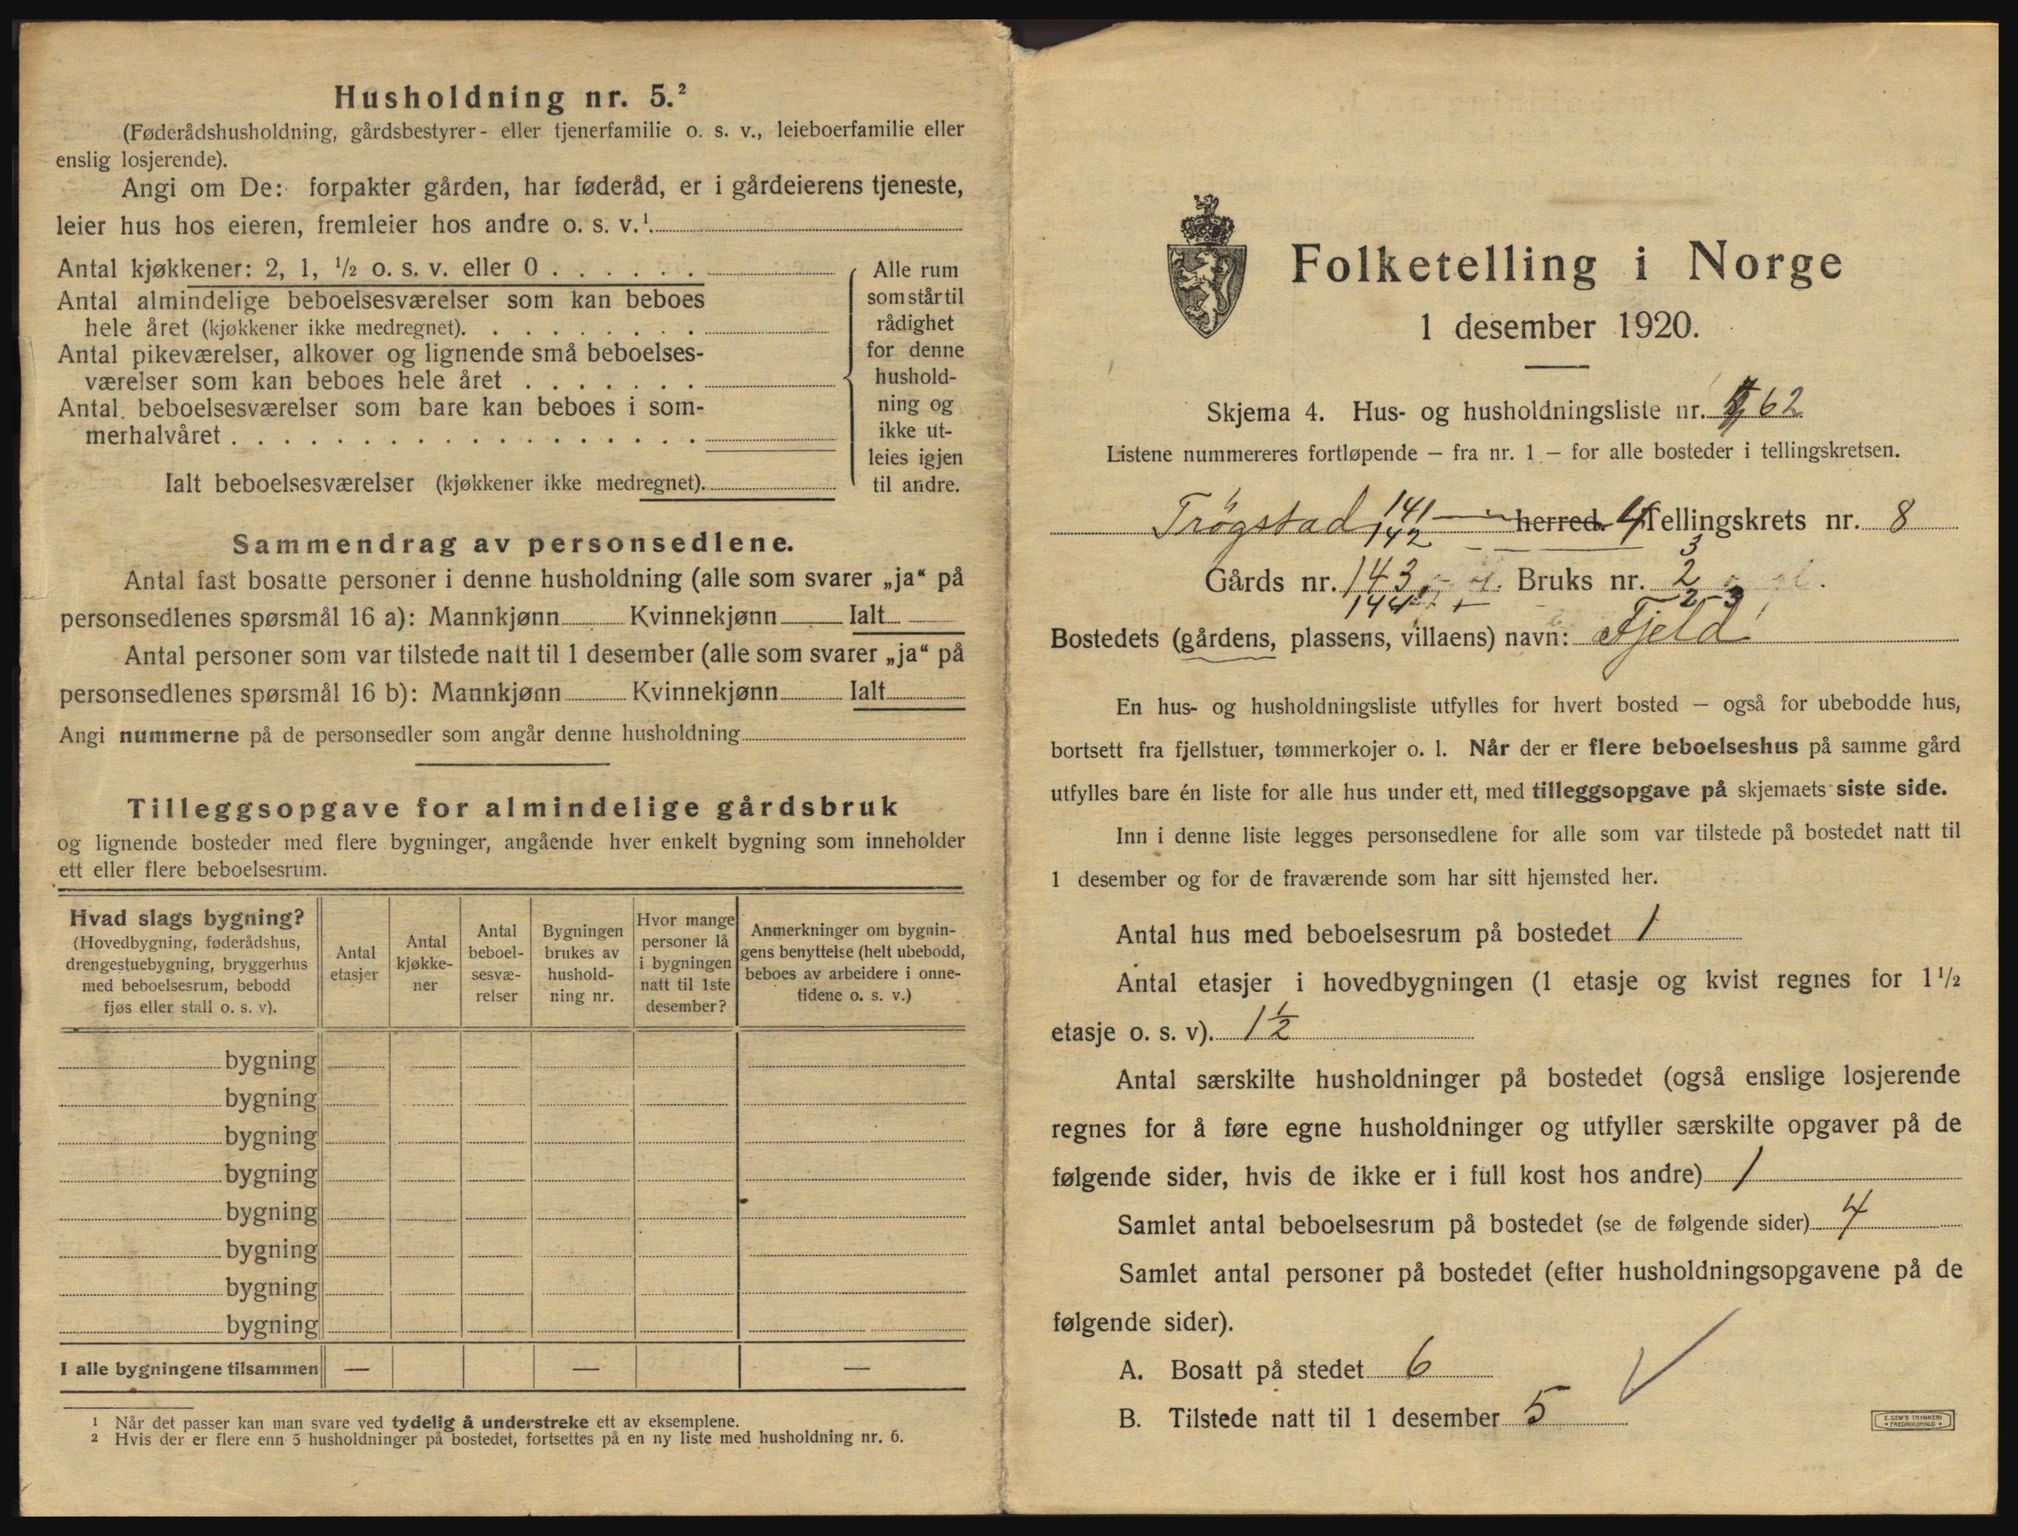 Husholdning nr. 5.²
(Føderådshusholdning, gårdsbestyrer- eller tjenerfamilie o. s. v., leieboerfamilie eller
enslig losjerende).
Angi om De: forpakter gården, har føderåd, er i gårdeierens tjeneste,
leier hus hos eieren, fremleier hos andre o. s. v.¹
Antal kjøkkener: 2, 1, ½ o. s. v. eller 0 . . . . . .
Antal almindelige beboelsesværelser som kan beboes
hele året (kjøkkener ikke medregnet). . . . . . . . .
Antal pikeværelser, alkover og lignende små beboelses-
værelser som kan beboes hele året . . . . . . .
Antal beboelsesværelser som bare kan beboes i som-
merhalvåret . . . . . . . . . . . . . . . . . .
Ialt beboelsesværelser (kjøkkener ikke medregnet).
Alle rum
som står til
rådighet
for denne
hushold-
ning og
ikke ut-
leies igjen
til andre.
Sammendrag av personsedlene.
Antal fast bosatte personer i denne husholdning (alle som svarer „ja“ på
personsedlenes spørsmål 16 a): Mannkjønn Kvinnekjønn Ialt
Antal personer som var tilstede natt til 1 desember (alle som svarer „ja“ på
personsedlenes spørsmål 16 b): Mannkjønn Kvinnekjønn Ialt
Angi nummerne på de personsedler som angår denne husholdning
Tilleggsopgave for almindelige gårdsbruk
og lignende bosteder med flere bygninger, angående hver enkelt bygning som inneholder
ett eller flere beboelsesrum.
Hvad slags bygning?
(Hovedbygning, føderådshus,
drengestuebygning, bryggerhus
med beboelsesrum, bebodd
fjøs eller stall o. s. v).
Antal
etasjer
Antal
kjøkke-
ner
Antal
beboel-
sesvæ-
relser
Bygningen
brukes av
hushold-
ning nr.
Hvor mange
personer lå
i bygningen
natt til 1ste
desember?
Anmerkninger om bygnin-
gens benyttelse (helt ubebodd,
beboes av arbeidere i onne-
tidene o. s. v.)
bygning
bygning
bygning
bygning
bygning
bygning
bygning
bygning
I alle bygningene tilsammen — — —
¹ Når det passer kan man svare ved tydelig å understreke ett av eksemplene.
² Hvis der er flere enn 5 husholdninger på bostedet, fortsettes på en ny liste med husholdning nr. 6.
Folketelling i Norge
1 desember 1920.
Skjema 4. Hus- og husholdningsliste nr. 62
Listene nummereres fortløpende — fra nr. 1 — for alle bosteder i tellingskretsen.
141
Trøgstad herred. 4 Tellingskrets nr. 8
142 3
Gårds nr. 143 Bruks nr. 2
144 2-3
Bostedets (gårdens, plassens, villaens) navn: Fjeld
En hus- og husholdningsliste utfylles for hvert bosted — også for ubebodde hus,
bortsett fra fjellstuer, tømmerkojer o. l. Når der er flere beboelseshus på samme gård
utfylles bare én liste for alle hus under ett, med tilleggsopgave på skjemaets siste side.
Inn i denne liste legges personsedlene for alle som var tilstede på bostedet natt til
1 desember og for de fraværende som har sitt hjemsted her.
Antal hus med beboelsesrum på bostedet 1
Antal etasjer i hovedbygningen (1 etasje og kvist regnes for 1½
etasje o. s. v). 1½
Antal særskilte husholdninger på bostedet (også enslige losjerende
regnes for å føre egne husholdninger og utfyller særskilte opgaver på de
følgende sider, hvis de ikke er i full kost hos andre) 1
Samlet antal beboelsesrum på bostedet (se de følgende sider) 4
Samlet antal personer på bostedet (efter husholdningsopgavene på de
følgende sider).
A. Bosatt på stedet 6
B. Tilstede natt til 1 desember 5
E. SEM'S TRYKKERI
FREDRIKSHALD